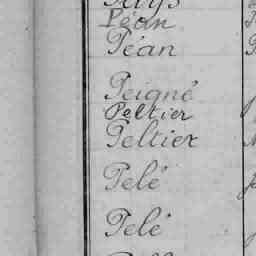 Péan
Péan
Peigné
Peltier
Peltier
Pelé
Pelé